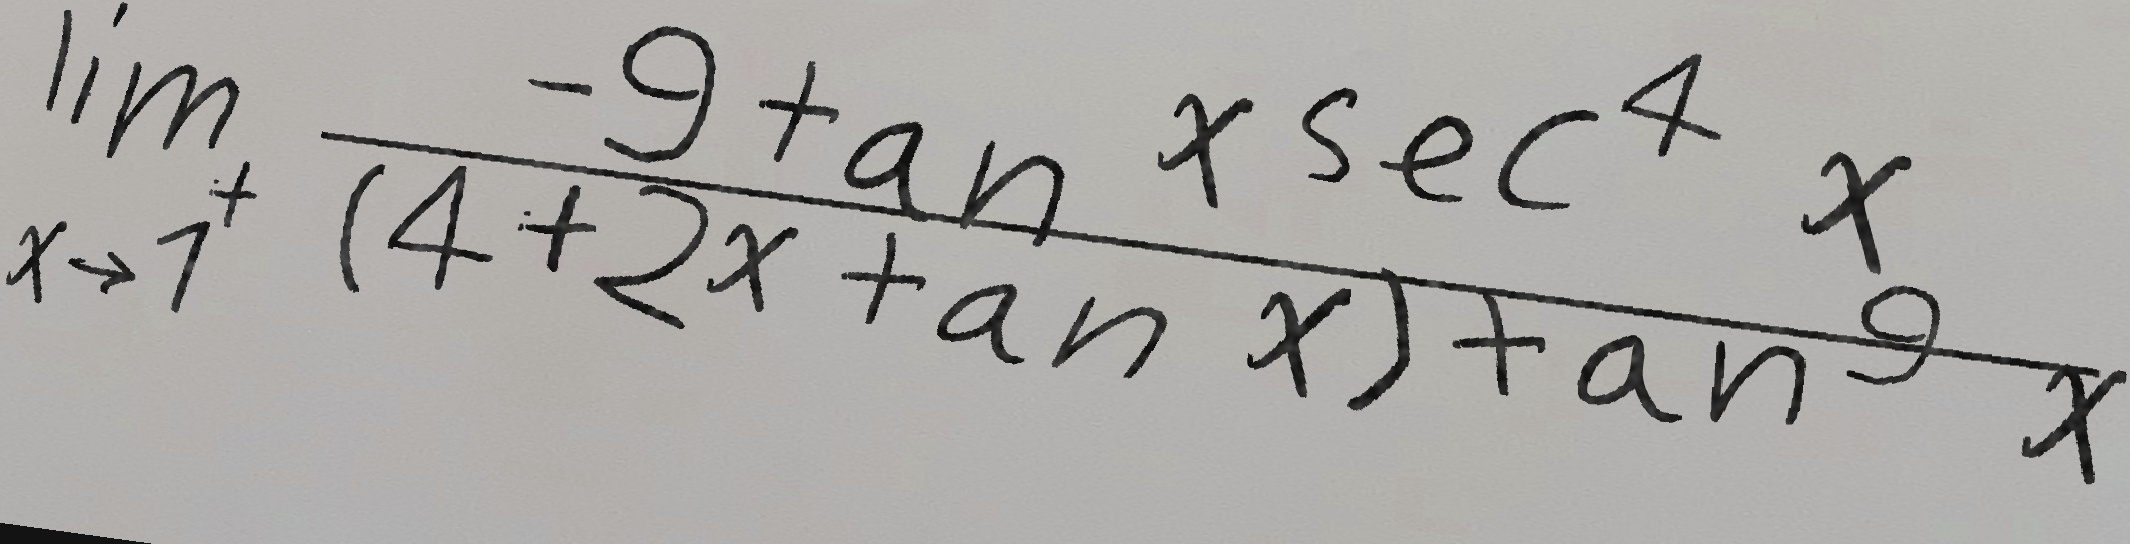 lim x→1⁺ (-9 tan x sec⁴ x) / ((4+2x tan x) tan⁹ x)